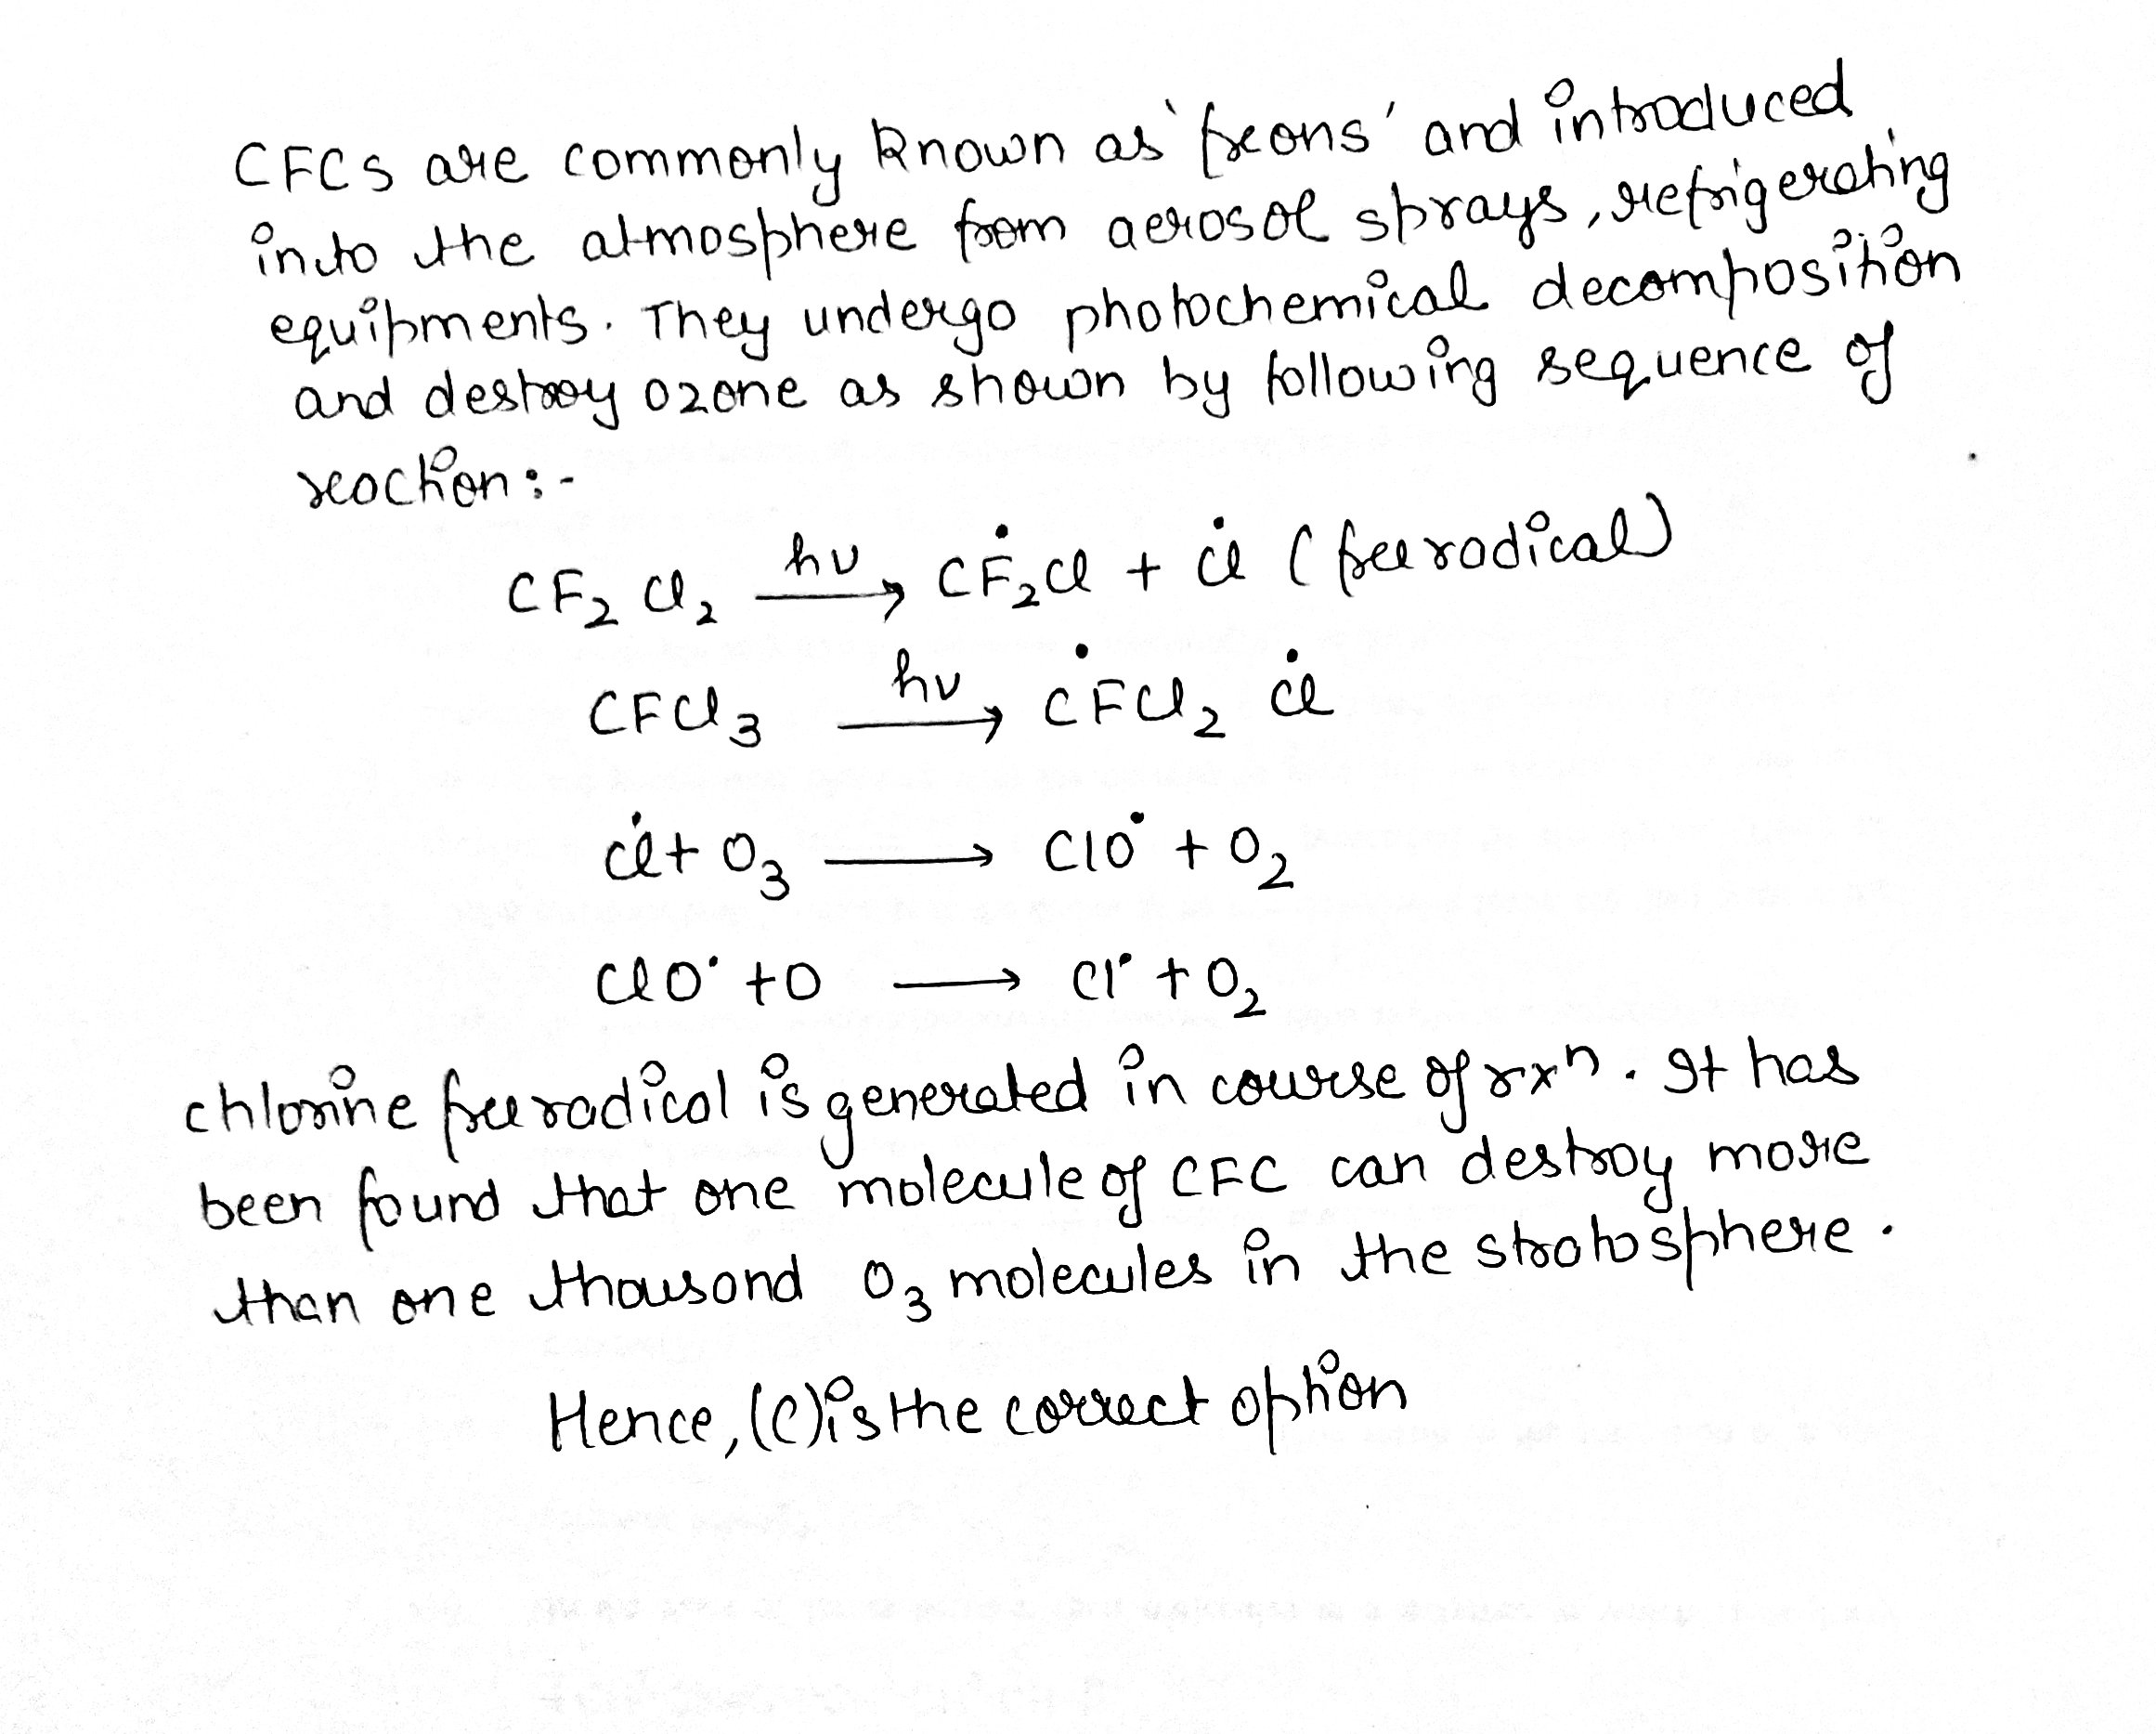 CFCs are commonly known as 'freons' and introduced
into the atmosphere from aerosol sprays, refrigerating
equipments. They undergo photochemical decomposition
and destroy ozone as shown by following sequence of
reaction:-
CF₂Cl₂ —hν→ CḞ₂Cl + Ċl (free radical)
CFCl₃ —hν→ ĊFCl₂ Ċl
Ċl + O₃ ⟶ ClO• + O₂
ClO• + O ⟶ Cl• + O₂
chlorine free radical is generated in course of rxⁿ. It has
been found that one molecule of CFC can destroy more
than one thousand O₃ molecules in the stratosphere.
Hence, (C) is the correct option